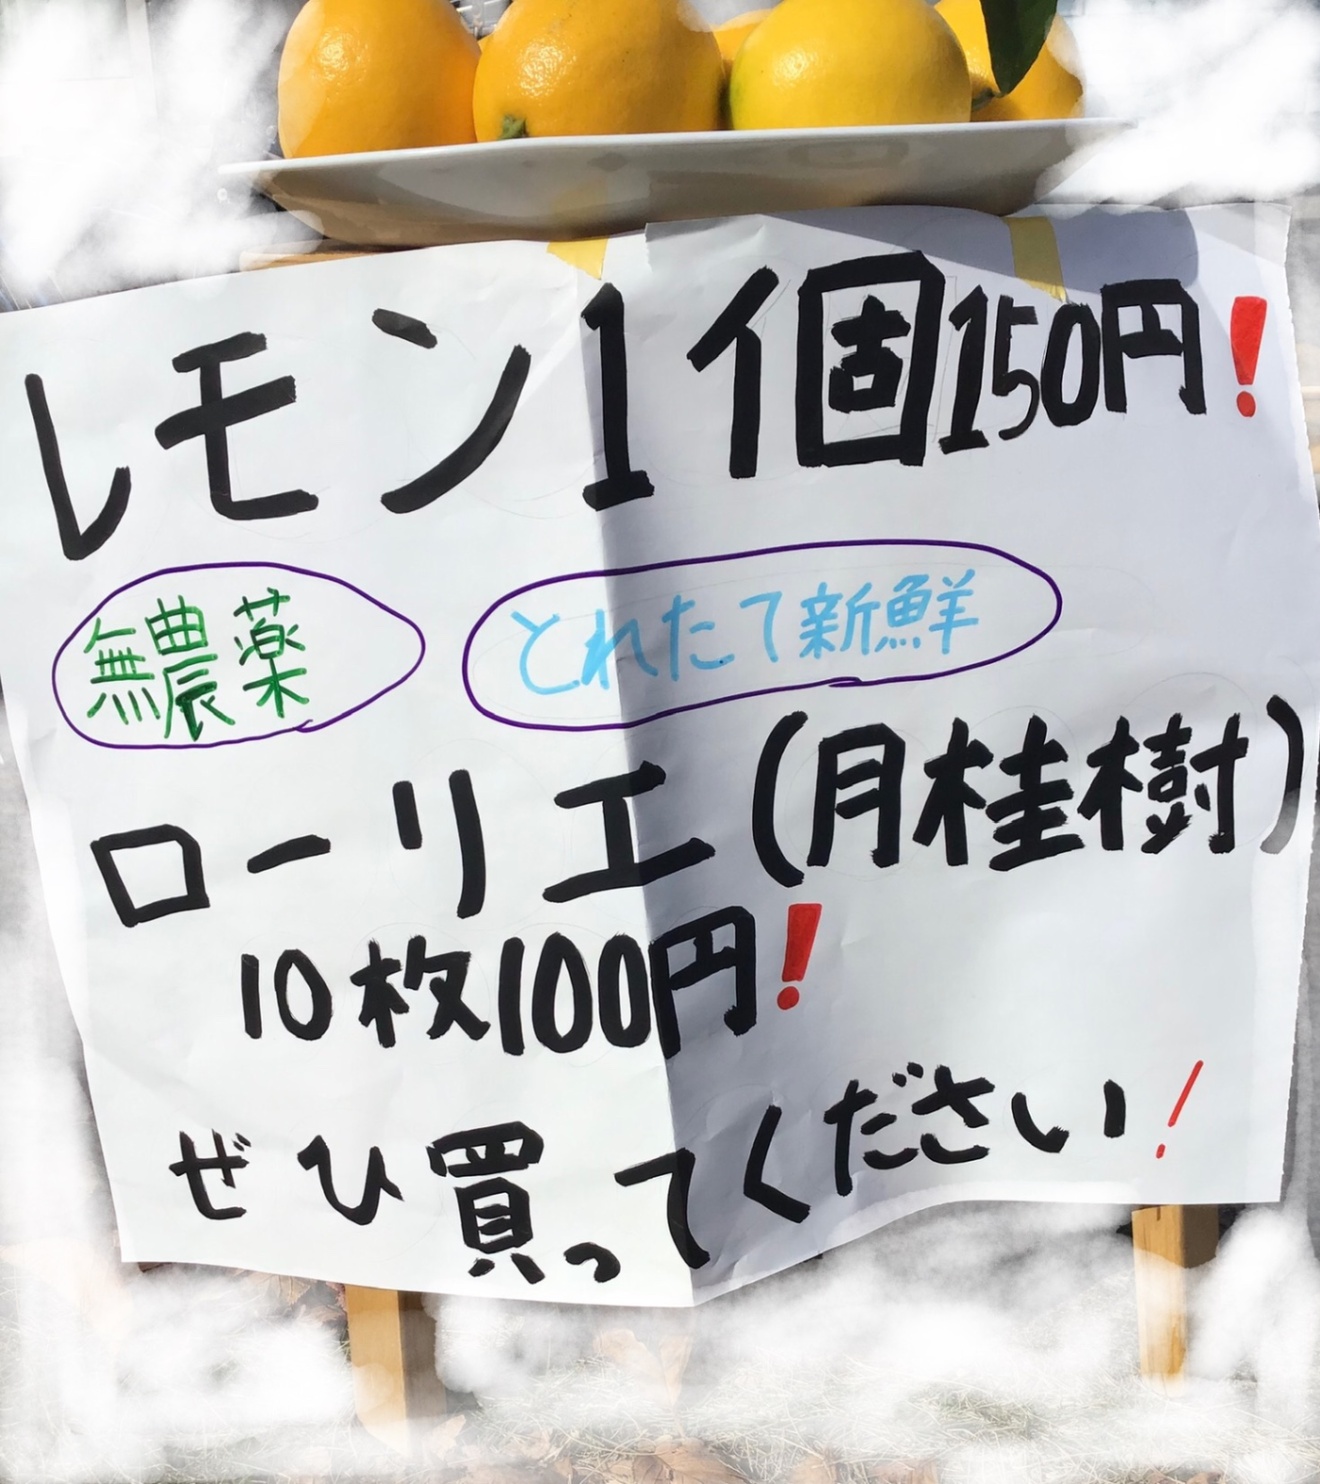 レモン1個150円❗
無農薬 とれたて新鮮
ローリエ(月桂樹)
10枚100円❗
ぜひ買ってください!